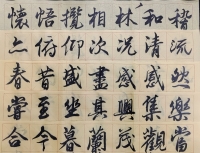 稽流然樂當
和清感集觀
林況感興茂
相次盡其蘭
攬仰感坐暮
悟俯昔至今
懷春嘗合